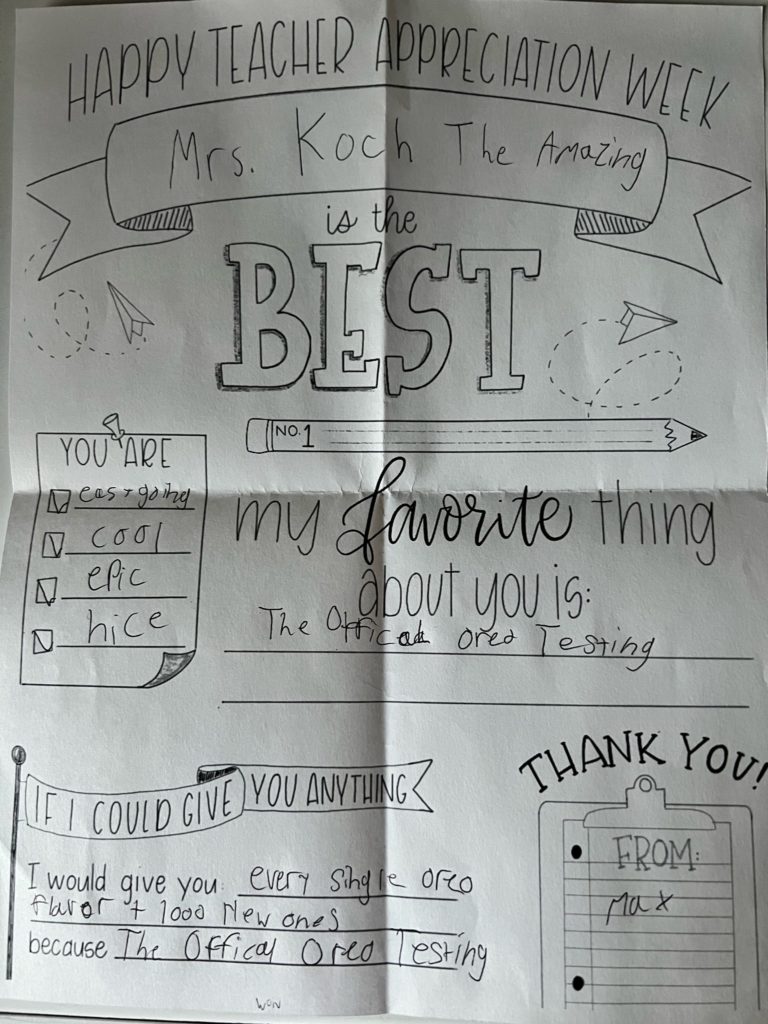 HAPPY TEACHER APPRECIATION WEEK
Mrs. Koch The Amazing
is the
BEST
NO. 1
YOU ARE
easygoing
cool
epic
nice
my favorite thing
about you is:
The Offical Oreo Testing
IF I COULD GIVE YOU ANYTHING
I would give you every single oreo
flavor + 1000 New ones
because The Offical Oreo Testing
THANK YOU!
FROM:
Max